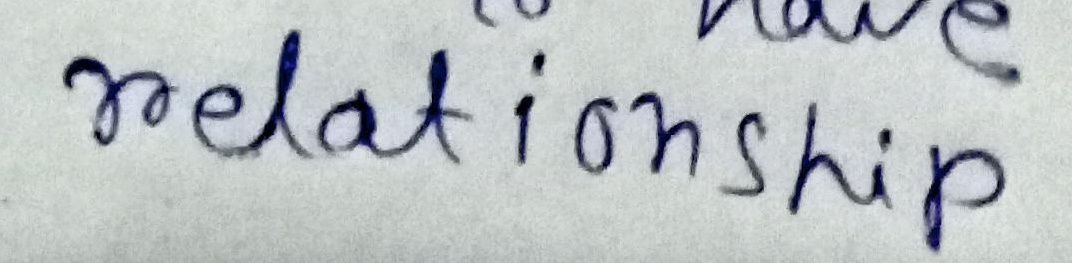 to have
relationship